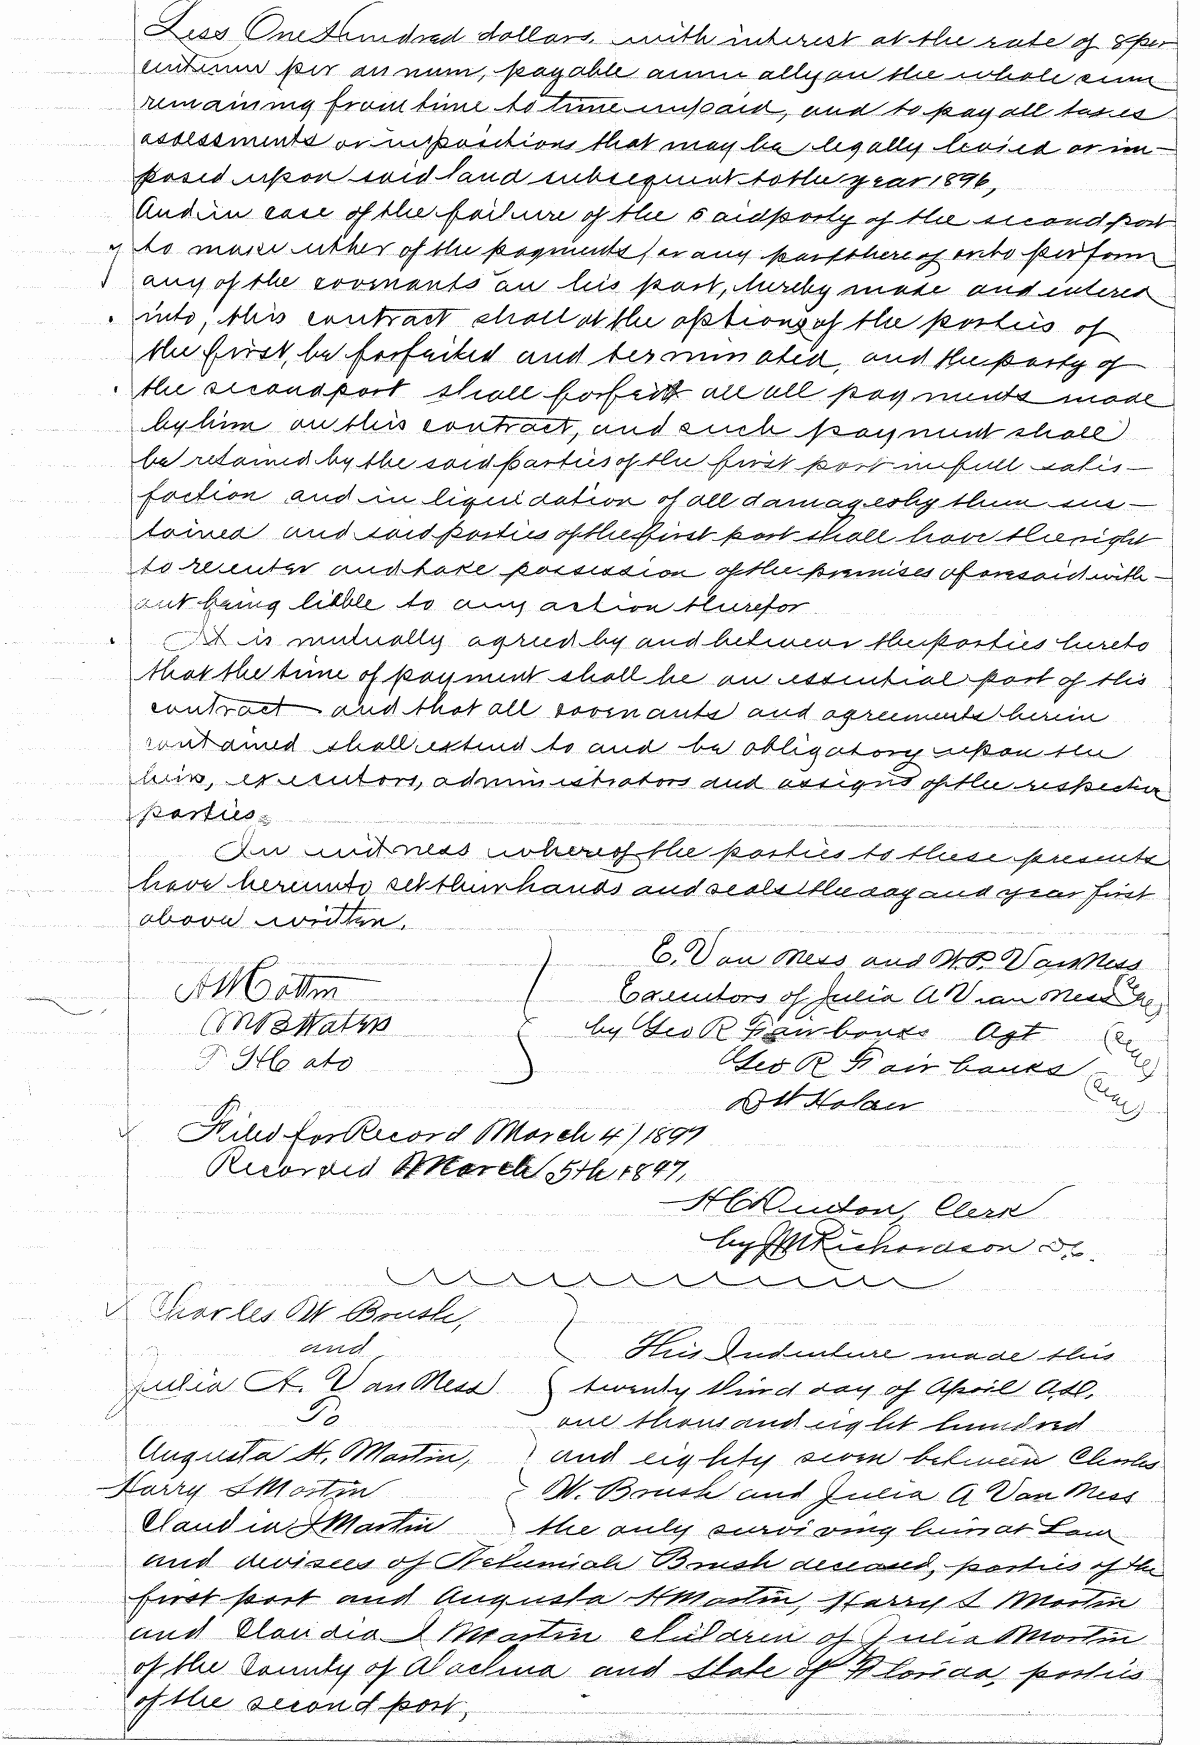 Less One Hundred dollars. with interest at the rate of 8 per
centum per annum, payable annually on the whole sum
remaining from time to time unpaid, and to pay all taxes
assessments or impositions that may be legally levied or im-
posed upon said land subsequent to the year 1896,
And in case of the failure of the said party of the second part
to make either of the payments, or any part thereof or to perform
any of the covenants on his part, hereby made and entered
into, this contract shall at the option of the parties of
the first, be forfeited and terminated, and the party of
the second part shall forfeit all all payments made
by him on this contract, and such payment shall
be retained by the said parties of the first part in full satis-
faction and in liquidation of all damages by them sus-
tained and said parties of the first part shall have the right
to reenter and take possession of the premises aforesaid with-
out being liable to any action therefor
It is mutually agreed by and between the parties hereto
that the time of payment shall be an essential part of this
contract and that all covenants and agreements herein
contained shall extend to and be obligatory upon the
heirs, executors, administrators and assigns of the respective
parties.
In witness whereof the parties to these presents
have hereunto set their hands and seals the day and year first
above written.
E. Van Ness and W.P. Van Ness
Executors of Julia A Van Ness (Seal)
by Geo R Fairbanks Agt (Seal)
Geo R Fairbanks (Seal)
Filed for Record March 4/1897
Recorded March 5th 1897,
H C Denton, Clerk
by J M Richardson D.C.
Charles W Brush,
and
Julia A. Van Ness
To
Augusta H. Martin,
Harry S Martin
Claudia I Martin
This Indenture made this
twenty third day of April A.D.
one thousand eight hundred
and eighty seven between Charles
W. Brush and Julia A Van Ness
the only surviving heirs at Law
and devisees of Nehemiah Brush deceased, parties of the
first part and Augusta H Martin, Harry S Martin
and Claudia I Martin children of Julia Martin
of the County of Alachua and State of Florida, parties
of the second part,